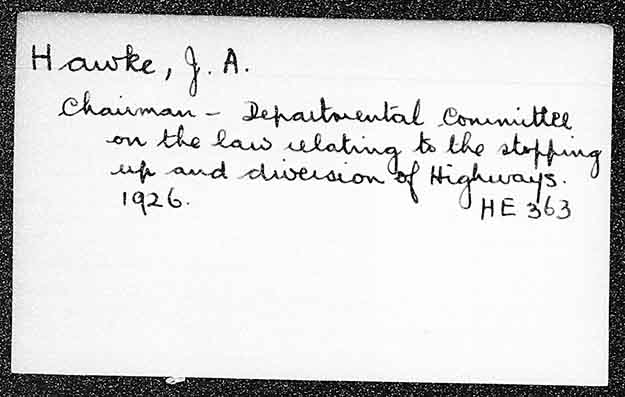 Hawke, J. A.
Chairman - Departmental Committee
on the law relating to the stopping
up and diversion of Highways.
1926.
HE 363